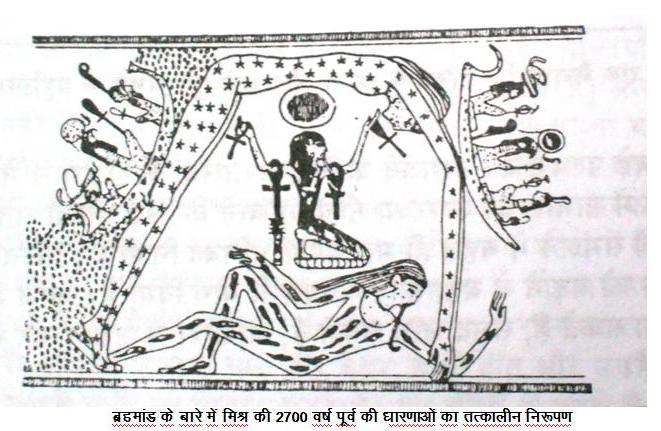 ब्रहमांड के बारे में मिश्र की 2700 वर्ष पूर्व की धारणाओं का तत्कालीन निरूपण